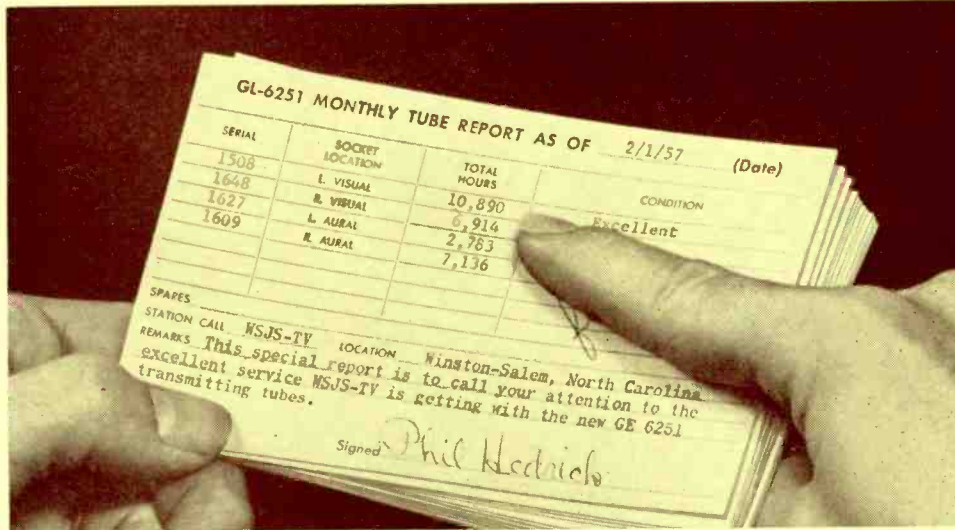 GL-6251 MONTHLY TUBE REPORT AS OF 2/1/57 (Date)
SERIAL SOCKET LOCATION TOTAL HOURS CONDITION
1508 L. VISUAL 10,890 Excellent
1648 R. VISUAL 6,914
1627 L. AURAL 2,783
1609 R. AURAL 7,136
SPARES
STATION CALL WSJS-TV LOCATION Winston-Salem, North Carolina
REMARKS This special report is to call your attention to the
excellent service WSJS-TV is getting with the new GE 6251
transmitting tubes.
Signed Phil Hedrick